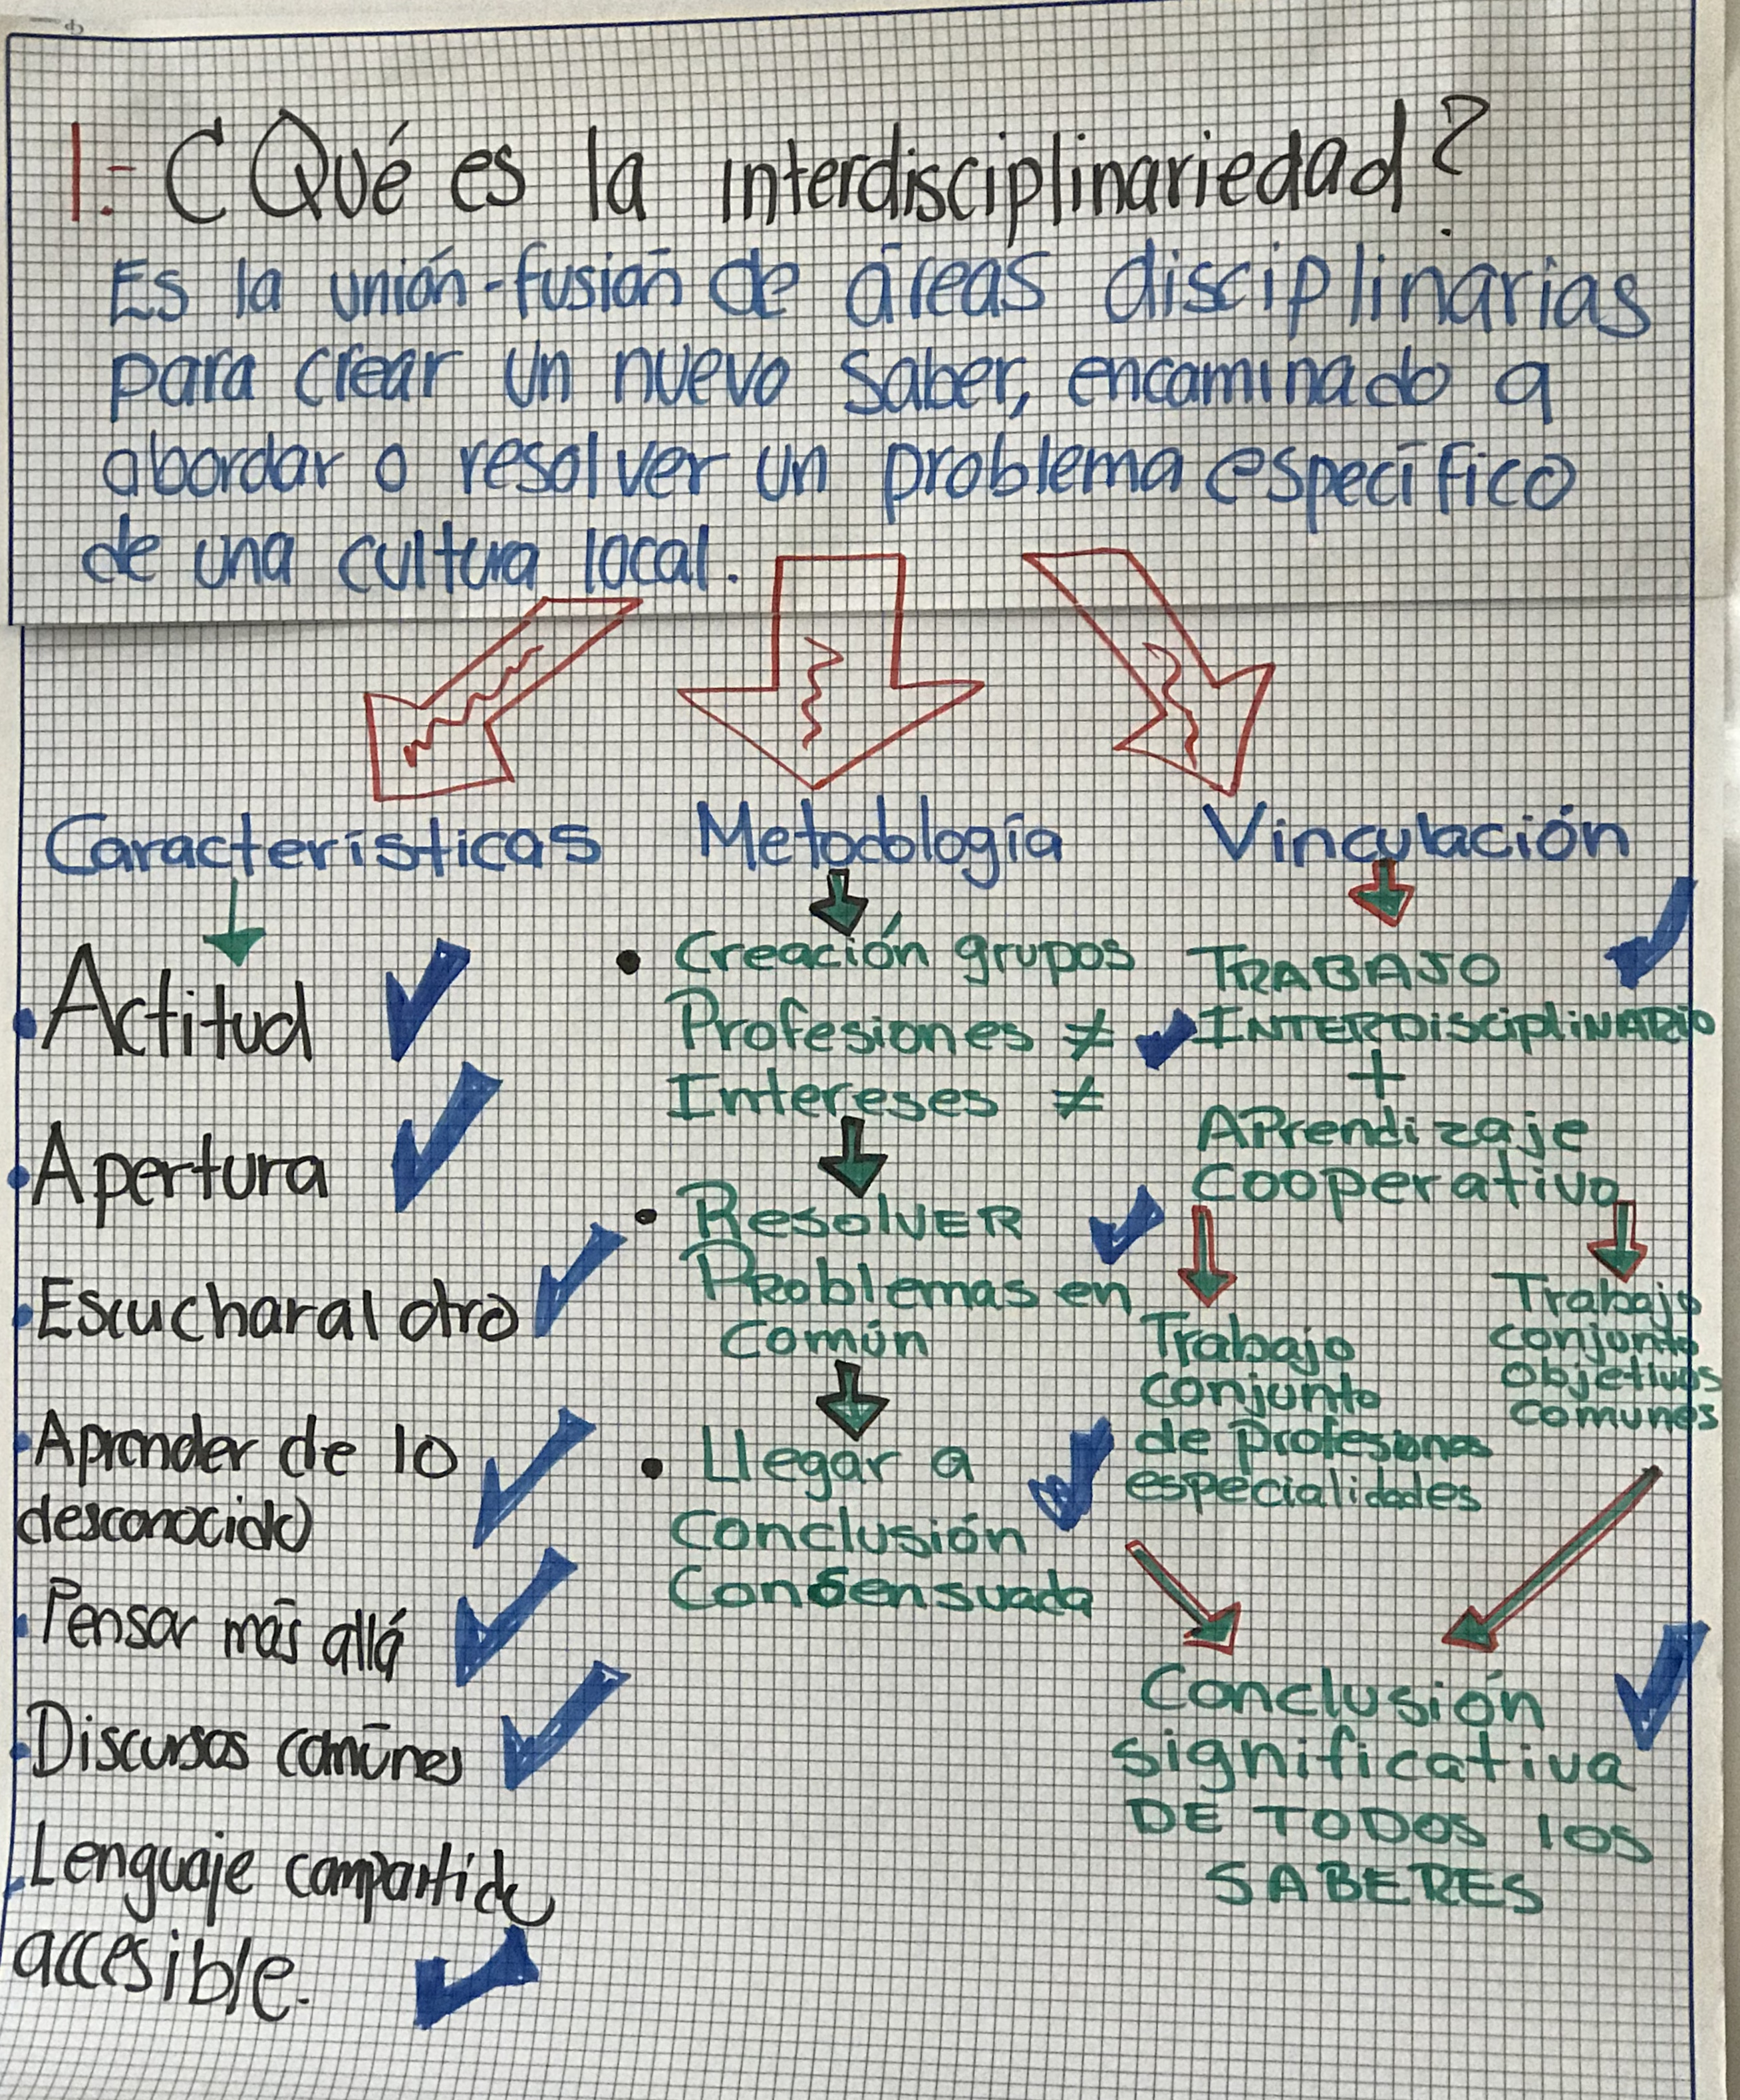 1.- ¿Qué es la interdisciplinariedad?
Es la unión-fusión de áreas disciplinarias
para crear un nuevo saber, encaminado a
abordar o resolver un problema específico
de una cultura local.
Características
• Actitud
• Apertura
• Escuchar al otro
• Aprender de lo
desconocido
• Pensar más allá
• Discursos comúnes
• Lenguaje compartido
accesible.
Metodología
• Creación grupos
Profesiones ≠
Intereses ≠
• Resolver
Problemas en
común
• Llegar a
Conclusión
Consensuada
Vinculación
TRABAJO
INTERDisciplinario
+
APrendizaje
cooperativo
Trabajo
conjunto
de profesiones
especialidades
Trabajo
conjunto
objetivos
comunes
Conclusión
significativa
DE TODOS los
SABERES